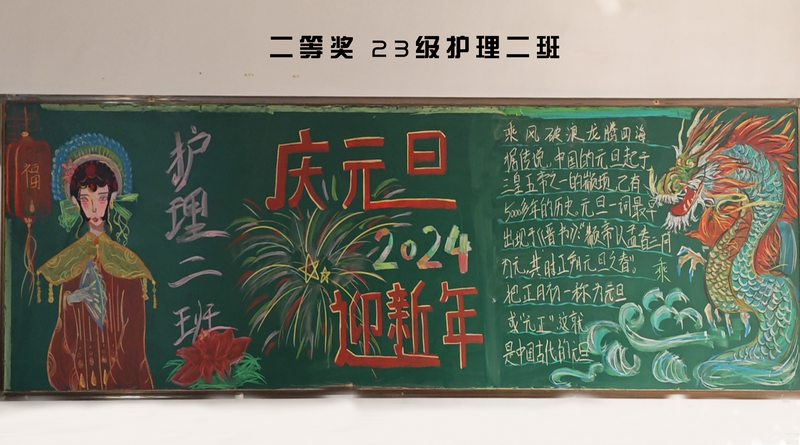 二等奖 23级护理二班
福
护理二班
庆元旦
2024
迎新年
乘风破浪龙腾四海
据传说,中国的元旦起于
三皇五帝之一的颛顼,已有
5000多年的历史,元旦一词最早
出现于《晋书》:“颛帝以孟春三月
为元,其时正朔元旦之春”。
乘
把正月初一称为元旦
或“元正”这就
是中国古代的元旦